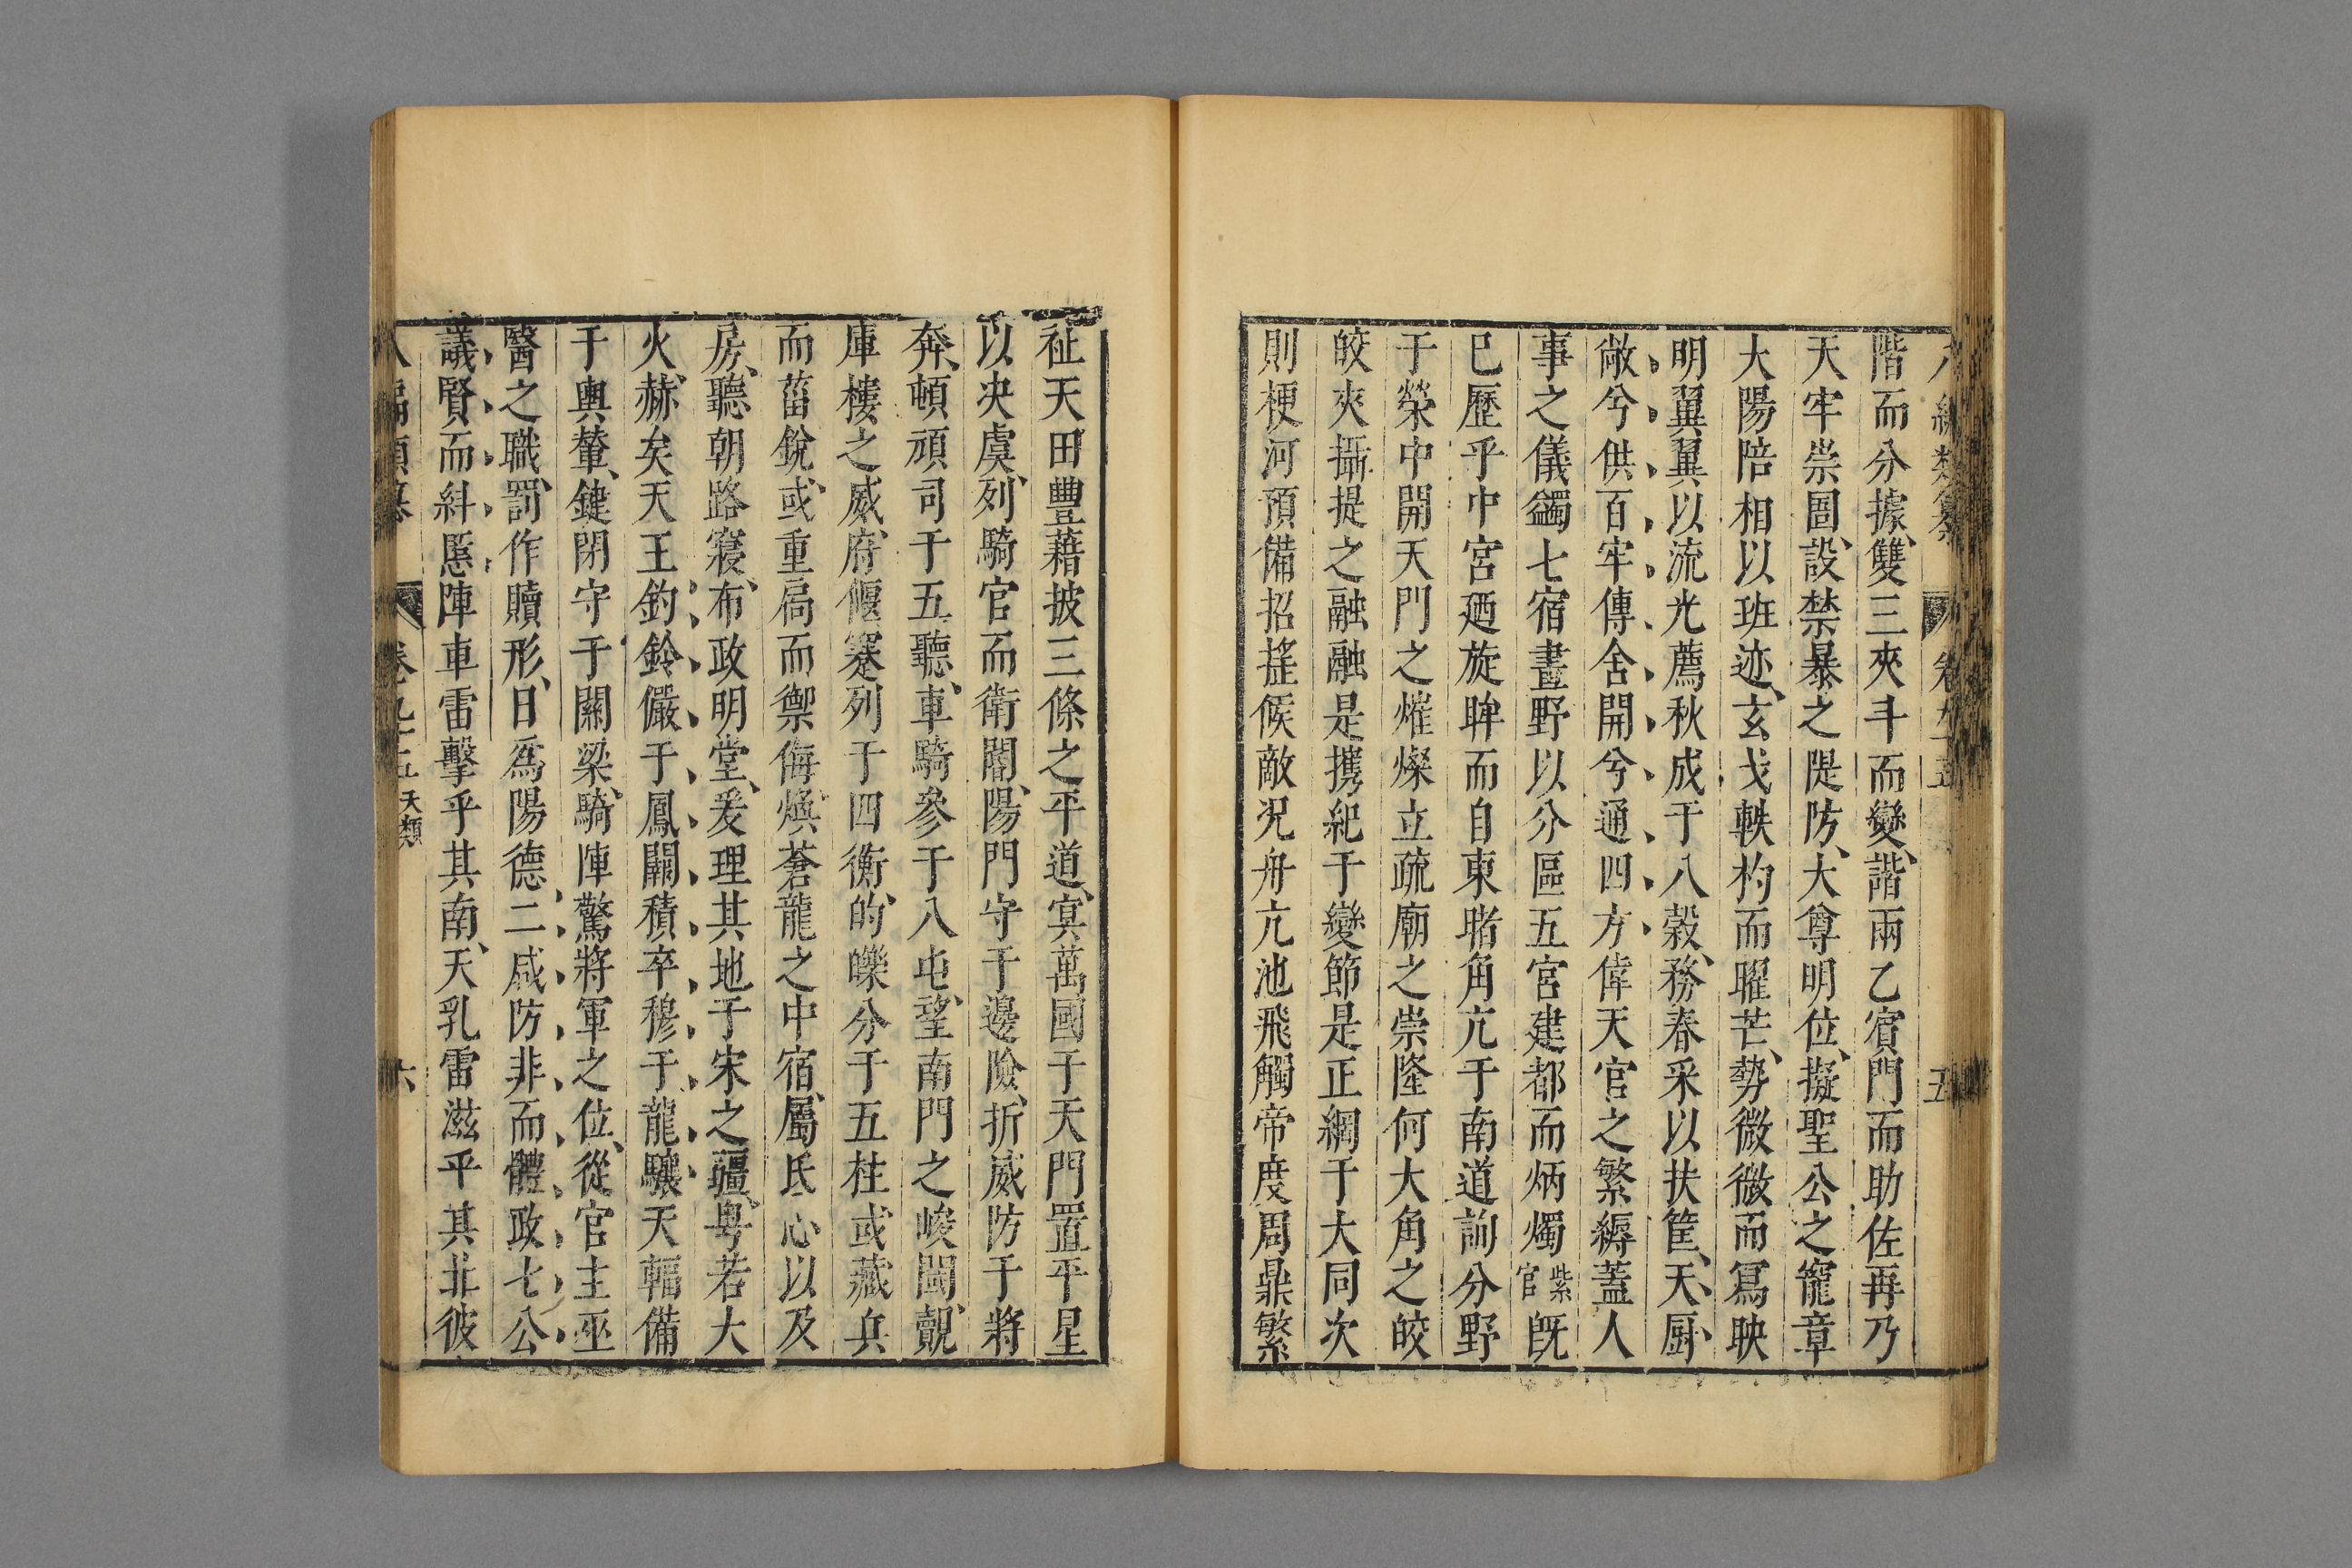 八編類纂 卷九十五 五
階而分據雙三夾斗而變諧兩乙賓門而助佐再乃
天牢崇圄設禁暴之隄防大尊明位擬聖公之寵章
大陽陪相以班迹玄戈軼杓而耀芒勢微微而寫映
明翼翼以流光薦秋成于八穀務春采以扶筐天厨
敞兮供百牢傳舍開兮通四方偉天官之繁縟蓋人
事之儀蠲七宿畫野以分區五宮建都而炳燭紫官既
巳歷乎中宮廼旋眸而自東睹角亢于南道詢分野
于滎中開天門之熣燦立疏廟之崇隆何大角之皎
皎夾攝提之融融是攜紀于變節是正綱于大同次
則梗河預備招搖候敵况舟亢池飛觴帝度周鼎繁
祉天田豐藉披三條之平道寘萬國于天門置平星
以决虞列騎官而衛閽陽門守于邊險折威防于將
奔頓頑司于五聽車騎參于八屯望南門之峻閫覿
庫樓之威府偃蹇列于四衡的皪分于五柱或藏兵
而蓄銳或重扃而禦侮煥蒼龍之中宿屬氐心以及
房聽朝路寢布政明堂爰理其地于宋之疆粤若大
火赫矣天王鈞鈴儼于鳳闕積卒穆于龍驤天輻備
于輿輦鍵閉守于關梁騎陣驚將軍之位從官主巫
醫之職罰作贖形日爲陽德二咸防非而體政七公
議賢而糾慝陣車雷擊乎其南天乳雷滋乎其北彼
八編類纂 卷九十五 天類 六